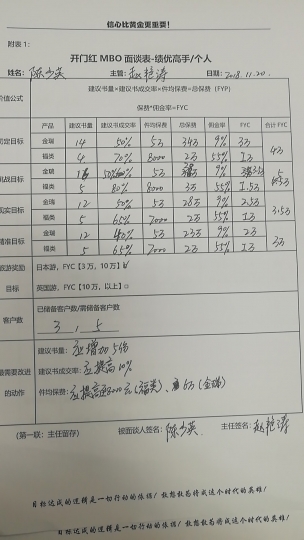 信心比黄金更重要！
附表 1：
开门红 MBO 面谈表-绩优高手/个人
姓名：陈少英 主管：赵艳涛 日期：2018.11.20.
价值公式 建议书量×建议书成交率×件均保费=总保费（FYP）
保费*佣金率=FYC
产品 建议书量 建议书成交率 件均保费 总保费 佣金率 FYC 合计 FYC
金瑞 14 50% 5万 34万 9% 3万 4万
福类 4 70% 8000 2万 55% 1万
挑战目标 金瑞 5万 9%
福类 5 80% 8000 3万 55% 1.5万
现实目标 金瑞 12 50% 5万 28万 9% 2.5万 3.5万
福类 5 65% 7000 2万 55% 1万
金瑞 12 40% 5万 23万 9% 2万 3万
福类 5 65% 7000 2万 55% 1万
旅游奖励 日本游，FYC【3 万，10 万】
目标 英国游，FYC【10 万，以上】□
客户数 已储备客户数/需储备客户数
3 , 5
建议书量：应增加5倍
最需要改进 建议书成交率：应提高10%
的动作 件均保费：应提高到8000元（福类）、6万（金瑞）
（第一联：主任留存） 被面谈人签名：陈少英 主任签名：赵艳涛
目标达成的逻辑是一切行动的依据！敢想敢为将成这个时代的英雄！
目标达成的逻辑是一切行动的依据！敢想敢为将成这个时代的英雄！